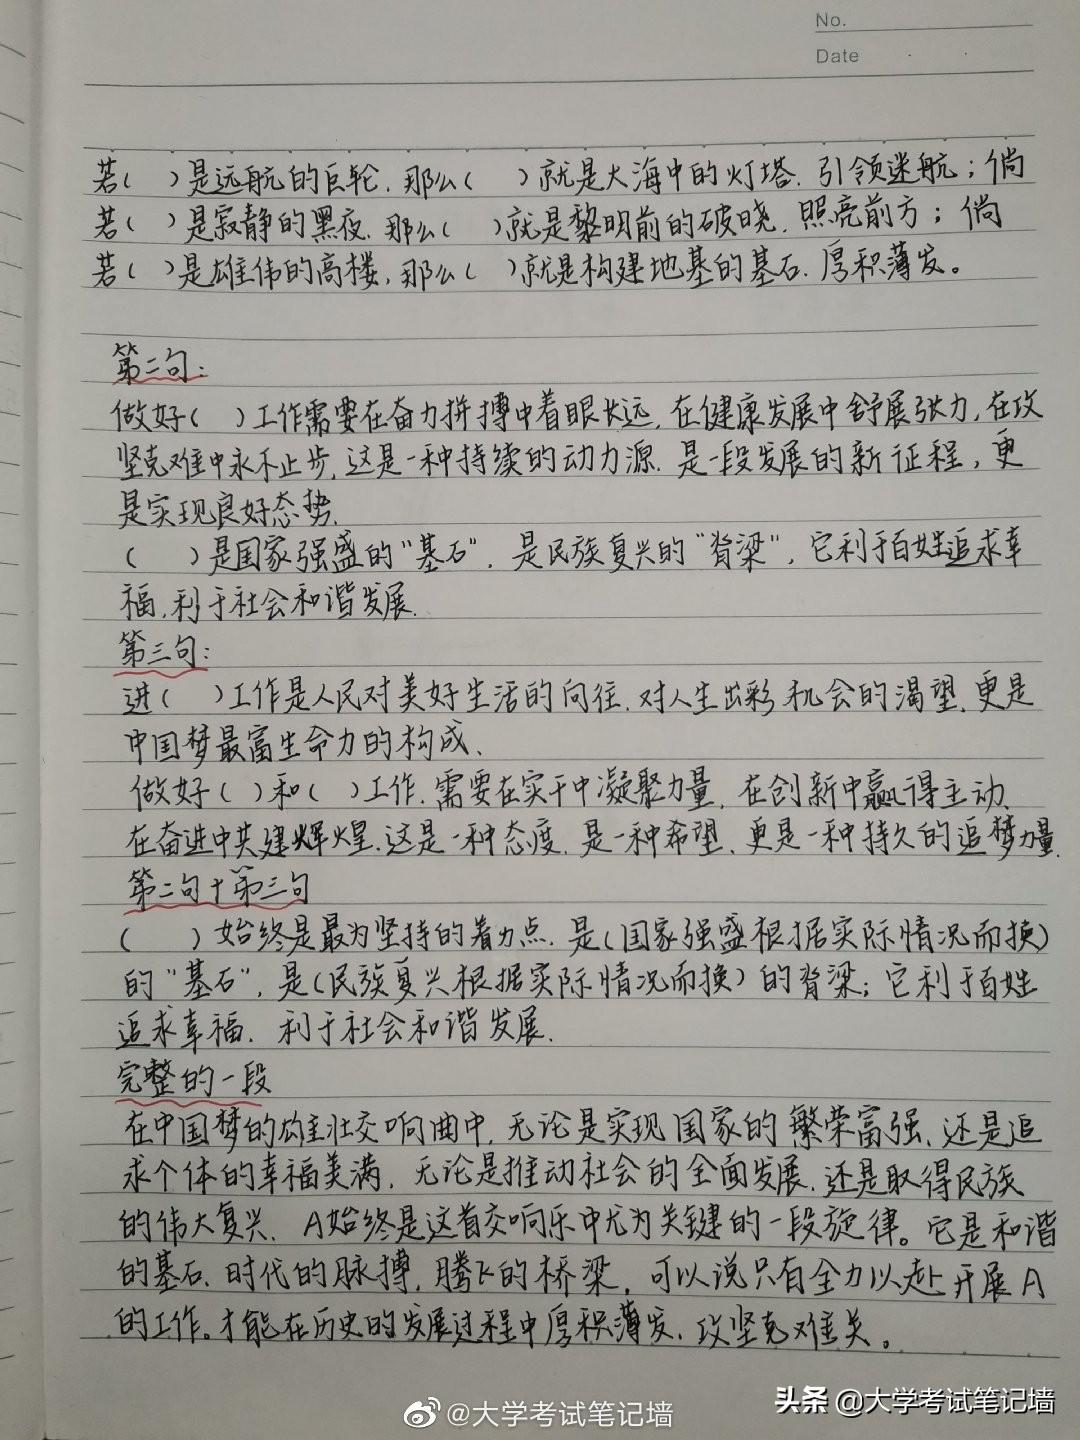 No.
Date
若( )是远航的巨轮,那么( )就是大海中的灯塔,引领迷航;倘
若( )是寂静的黑夜,那么( )就是黎明前的破晓,照亮前方;倘
若( )是雄伟的高楼,那么( )就是构建地基的基石,厚积薄发。
第二句:
做好( )工作需要在奋力拼搏中着眼长远,在健康发展中舒展张力,在攻
坚克难中永不止步,这是一种持续的动力源,是一段发展的新征程,更
是实现良好态势.
( )是国家强盛的"基石",是民族复兴的"脊梁",它利于百姓追求幸
福,利于社会和谐发展.
第三句:
进( )工作是人民对美好生活的向往,对人生出彩机会的渴望,更是
中国梦最富生命力的构成、
做好( )和( )工作,需要在实干中凝聚力量,在创新中赢得主动、
在奋进中共建辉煌,这是一种态度,是一种希望,更是一种持久的追梦力量.
第二句+第三句
( )始终是最为坚持的着力点,是(国家强盛根据实际情况而换)
的"基石",是(民族复兴根据实际情况而换)的脊梁;它利于百姓
追求幸福,利于社会和谐发展.
完整的一段
在中国梦的雄壮交响曲中,无论是实现国家的繁荣富强、还是追
求个体的幸福美满,无论是推动社会的全面发展,还是取得民族
的伟大复兴、A始终是这首交响乐中尤为关键的一段旋律。它是和谐
的基石,时代的脉搏,腾飞的桥梁,可以说只有全力以赴开展A
的工作。才能在历史的发展过程中厚积薄发、攻坚克难关。
@大学考试笔记墙
头条@大学考试笔记墙